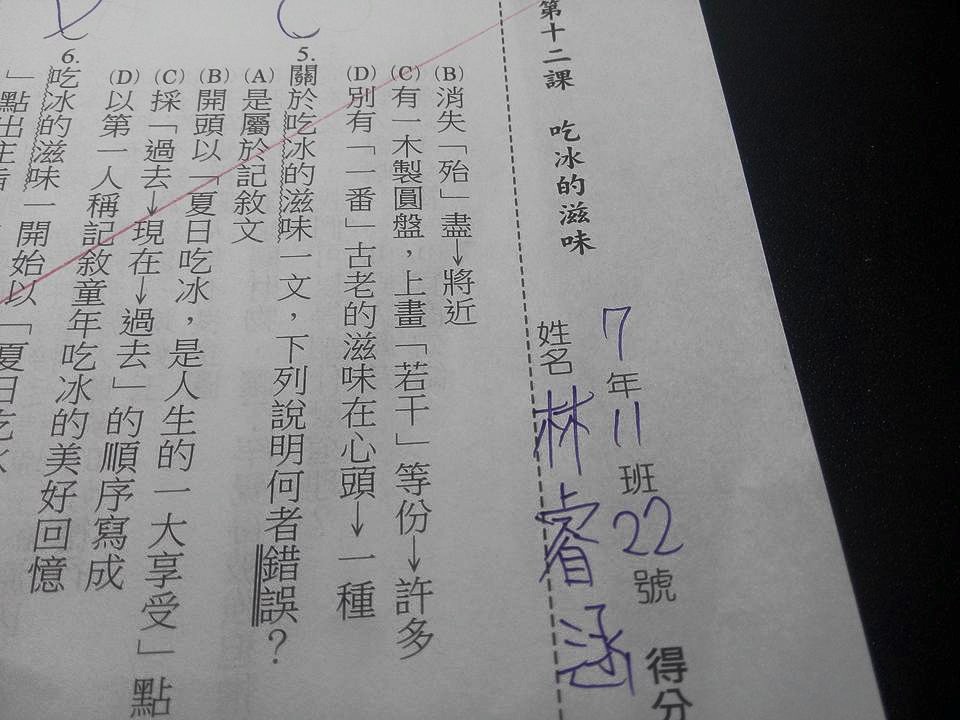 第十二課 吃冰的滋味
7年11班22號 得分
姓名 林睿涵
(B)消失「殆」盡→將近
(C)有一木製圓盤，上畫「若干」等份→許多
(D)別有「一番」古老的滋味在心頭→一種
5.關於吃冰的滋味一文，下列說明何者錯誤？
(A)是屬於記敘文
(B)開頭以「夏日吃冰，是人生的一大享受」點
(C)採「過去→現在→過去」的順序寫成
(D)以第一人稱記敘童年吃冰的美好回憶
6.吃冰的滋味一開始以「夏日吃冰
」點出主旨